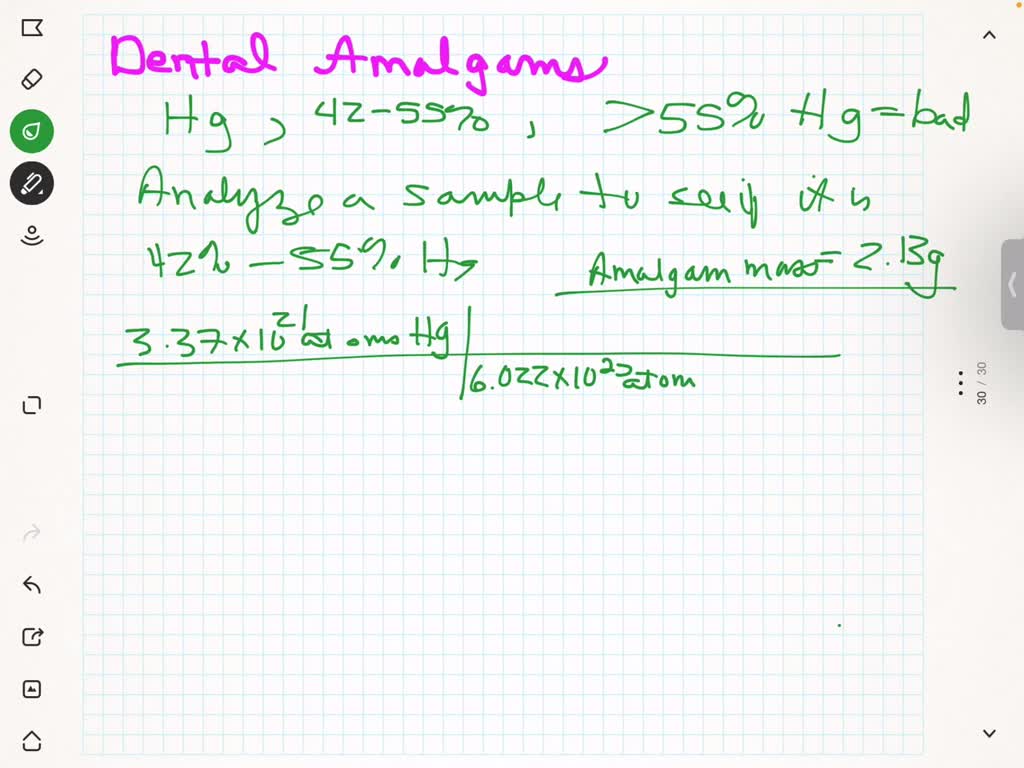 Dental Amalgams
Hg, 42-55%, >55% Hg=bad
Analyze a sample to see if it is
42% - 55% Hg Amalgam mass = 2.13g
3.37×10²¹ atoms Hg
6.022×10²³ atom
30 / 30